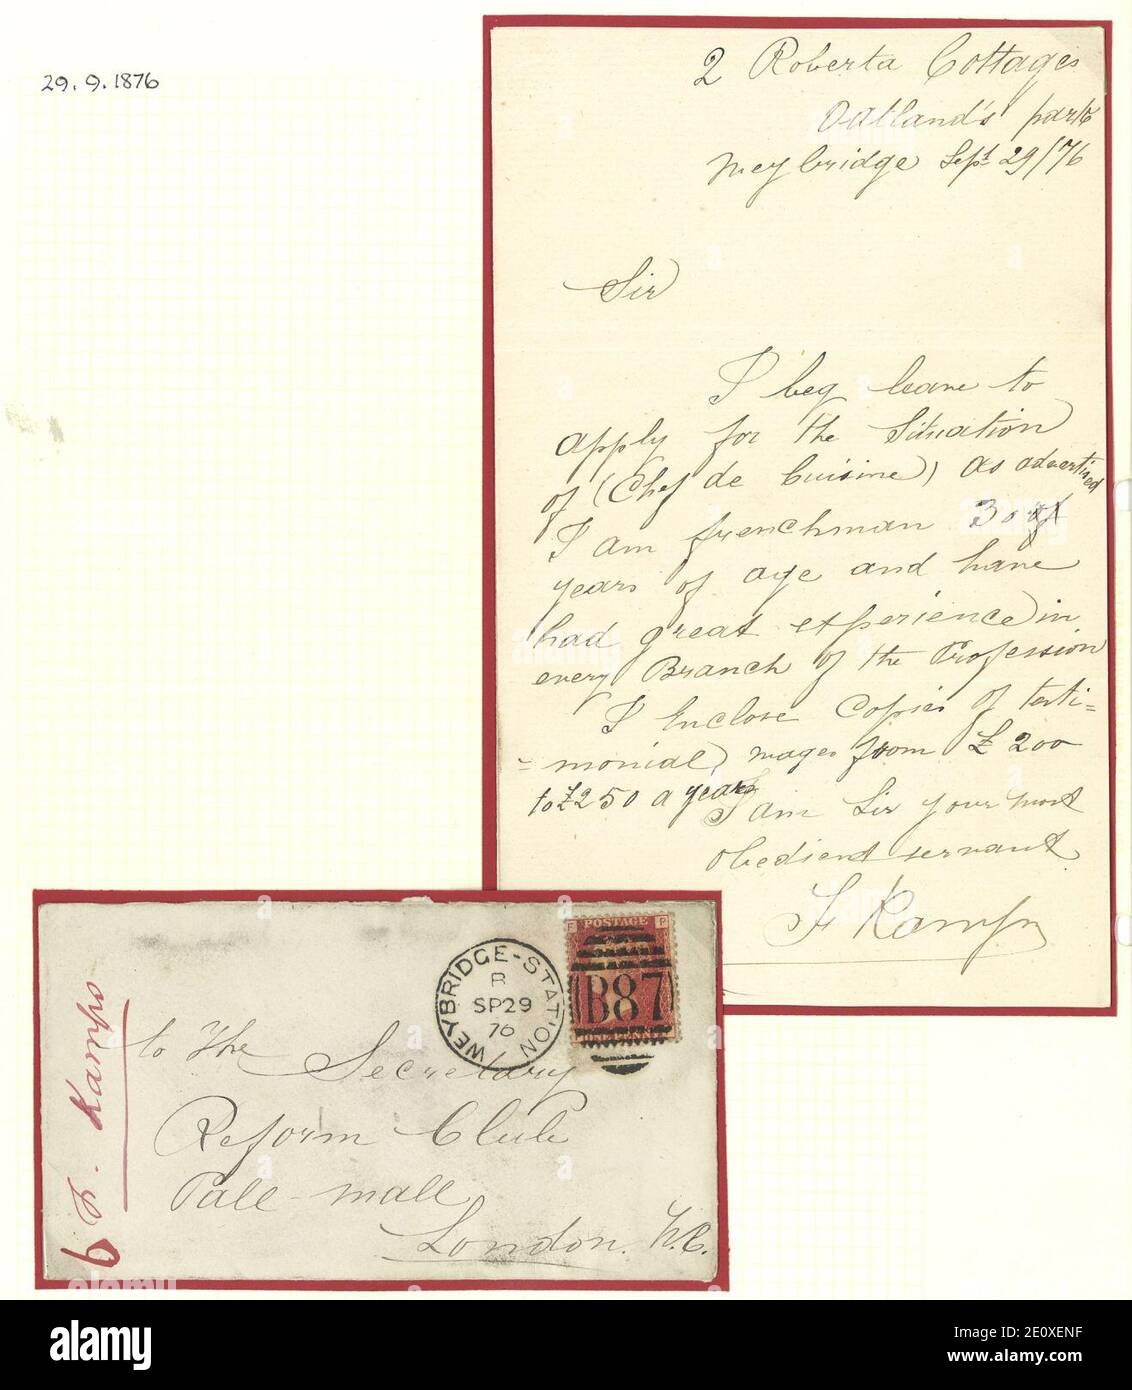 29.9.1876
2 Roberta Cottages
Oatland's park
Weybridge Sept 29/76
Sir
I beg leave to
apply for the Situation
of (Chef de Cuisine) as advertised
I am frenchman 30 of
years of age and have
had great experience in
every Branch of the Profession
I Enclose Copies of testi=
=monial, wages from £200
to £250 a year
I am Sir your most
obedient servant
F Kamps
POSTAGE
F P
B87
ONE PENNY
WEYBRIDGE-STATION
B
SP29
76
to The Secretary
Reform Club
Pall-mall
London.
6 F. Kamps
alamy
Image ID: 2E0XENF
www.alamy.com